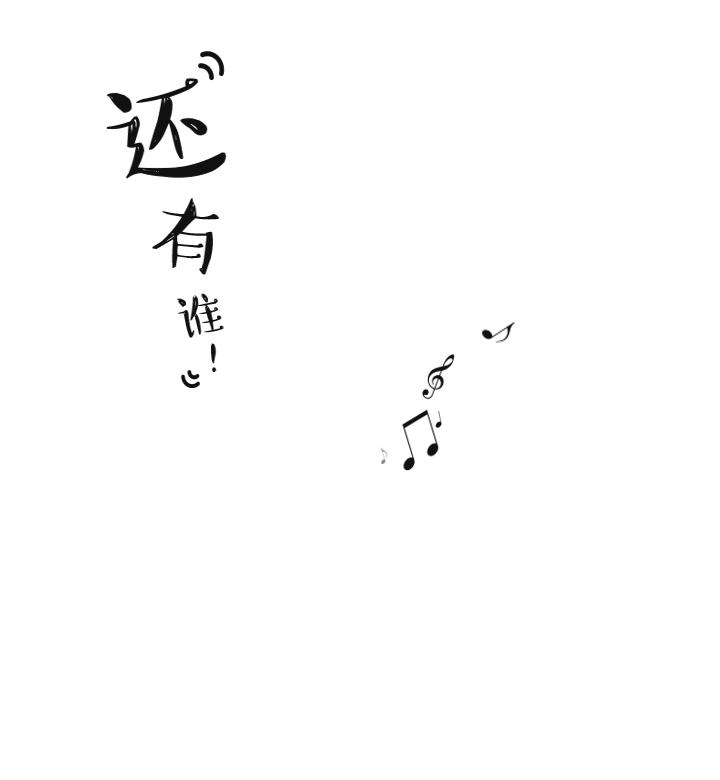 还有谁！